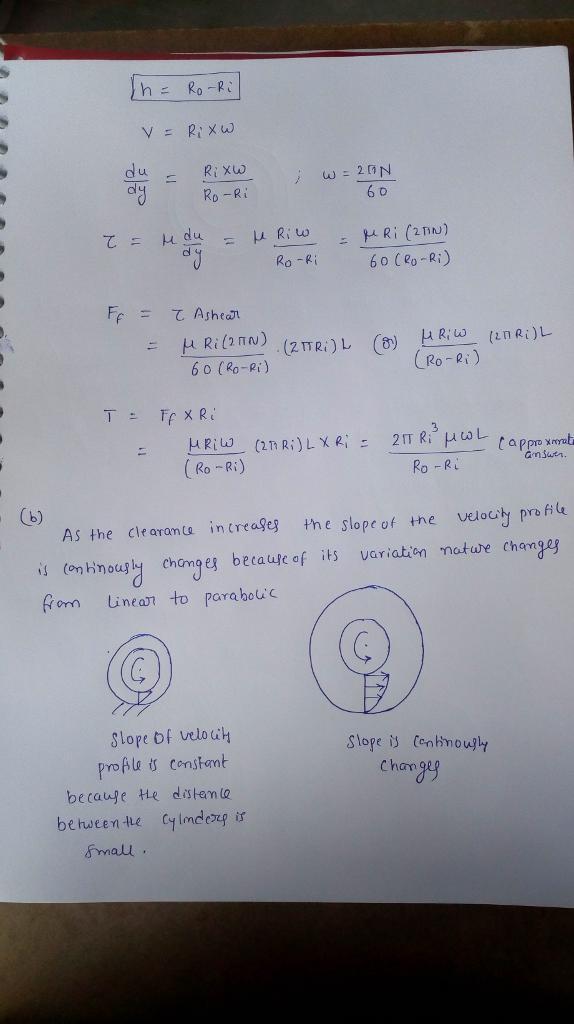 h = Ro-Ri
V = Ri×ω
du/dy = Ri×ω / Ro-Ri ; ω = 2πN / 60
τ = μ du/dy = μ Riω / Ro-Ri = μ Ri (2πN) / 60 (Ro-Ri)
Ff = τ Ashear
= μ Ri(2πN) / 60 (Ro-Ri) . (2πRi) L (or) μ Riω / (Ro-Ri) (2πRi)L
T = Ff × Ri
= μRiω / (Ro-Ri) (2πRi) L × Ri = 2π Ri³ μωL / Ro-Ri (approximate
answer.
(b)
As the clearance increases the slope of the velocity profile
is continously changes because of its variation nature changes
from linear to parabolic
Slope of velocity
profile is constant
because the distance
between the cylinders is
small.
Slope is continously
changes